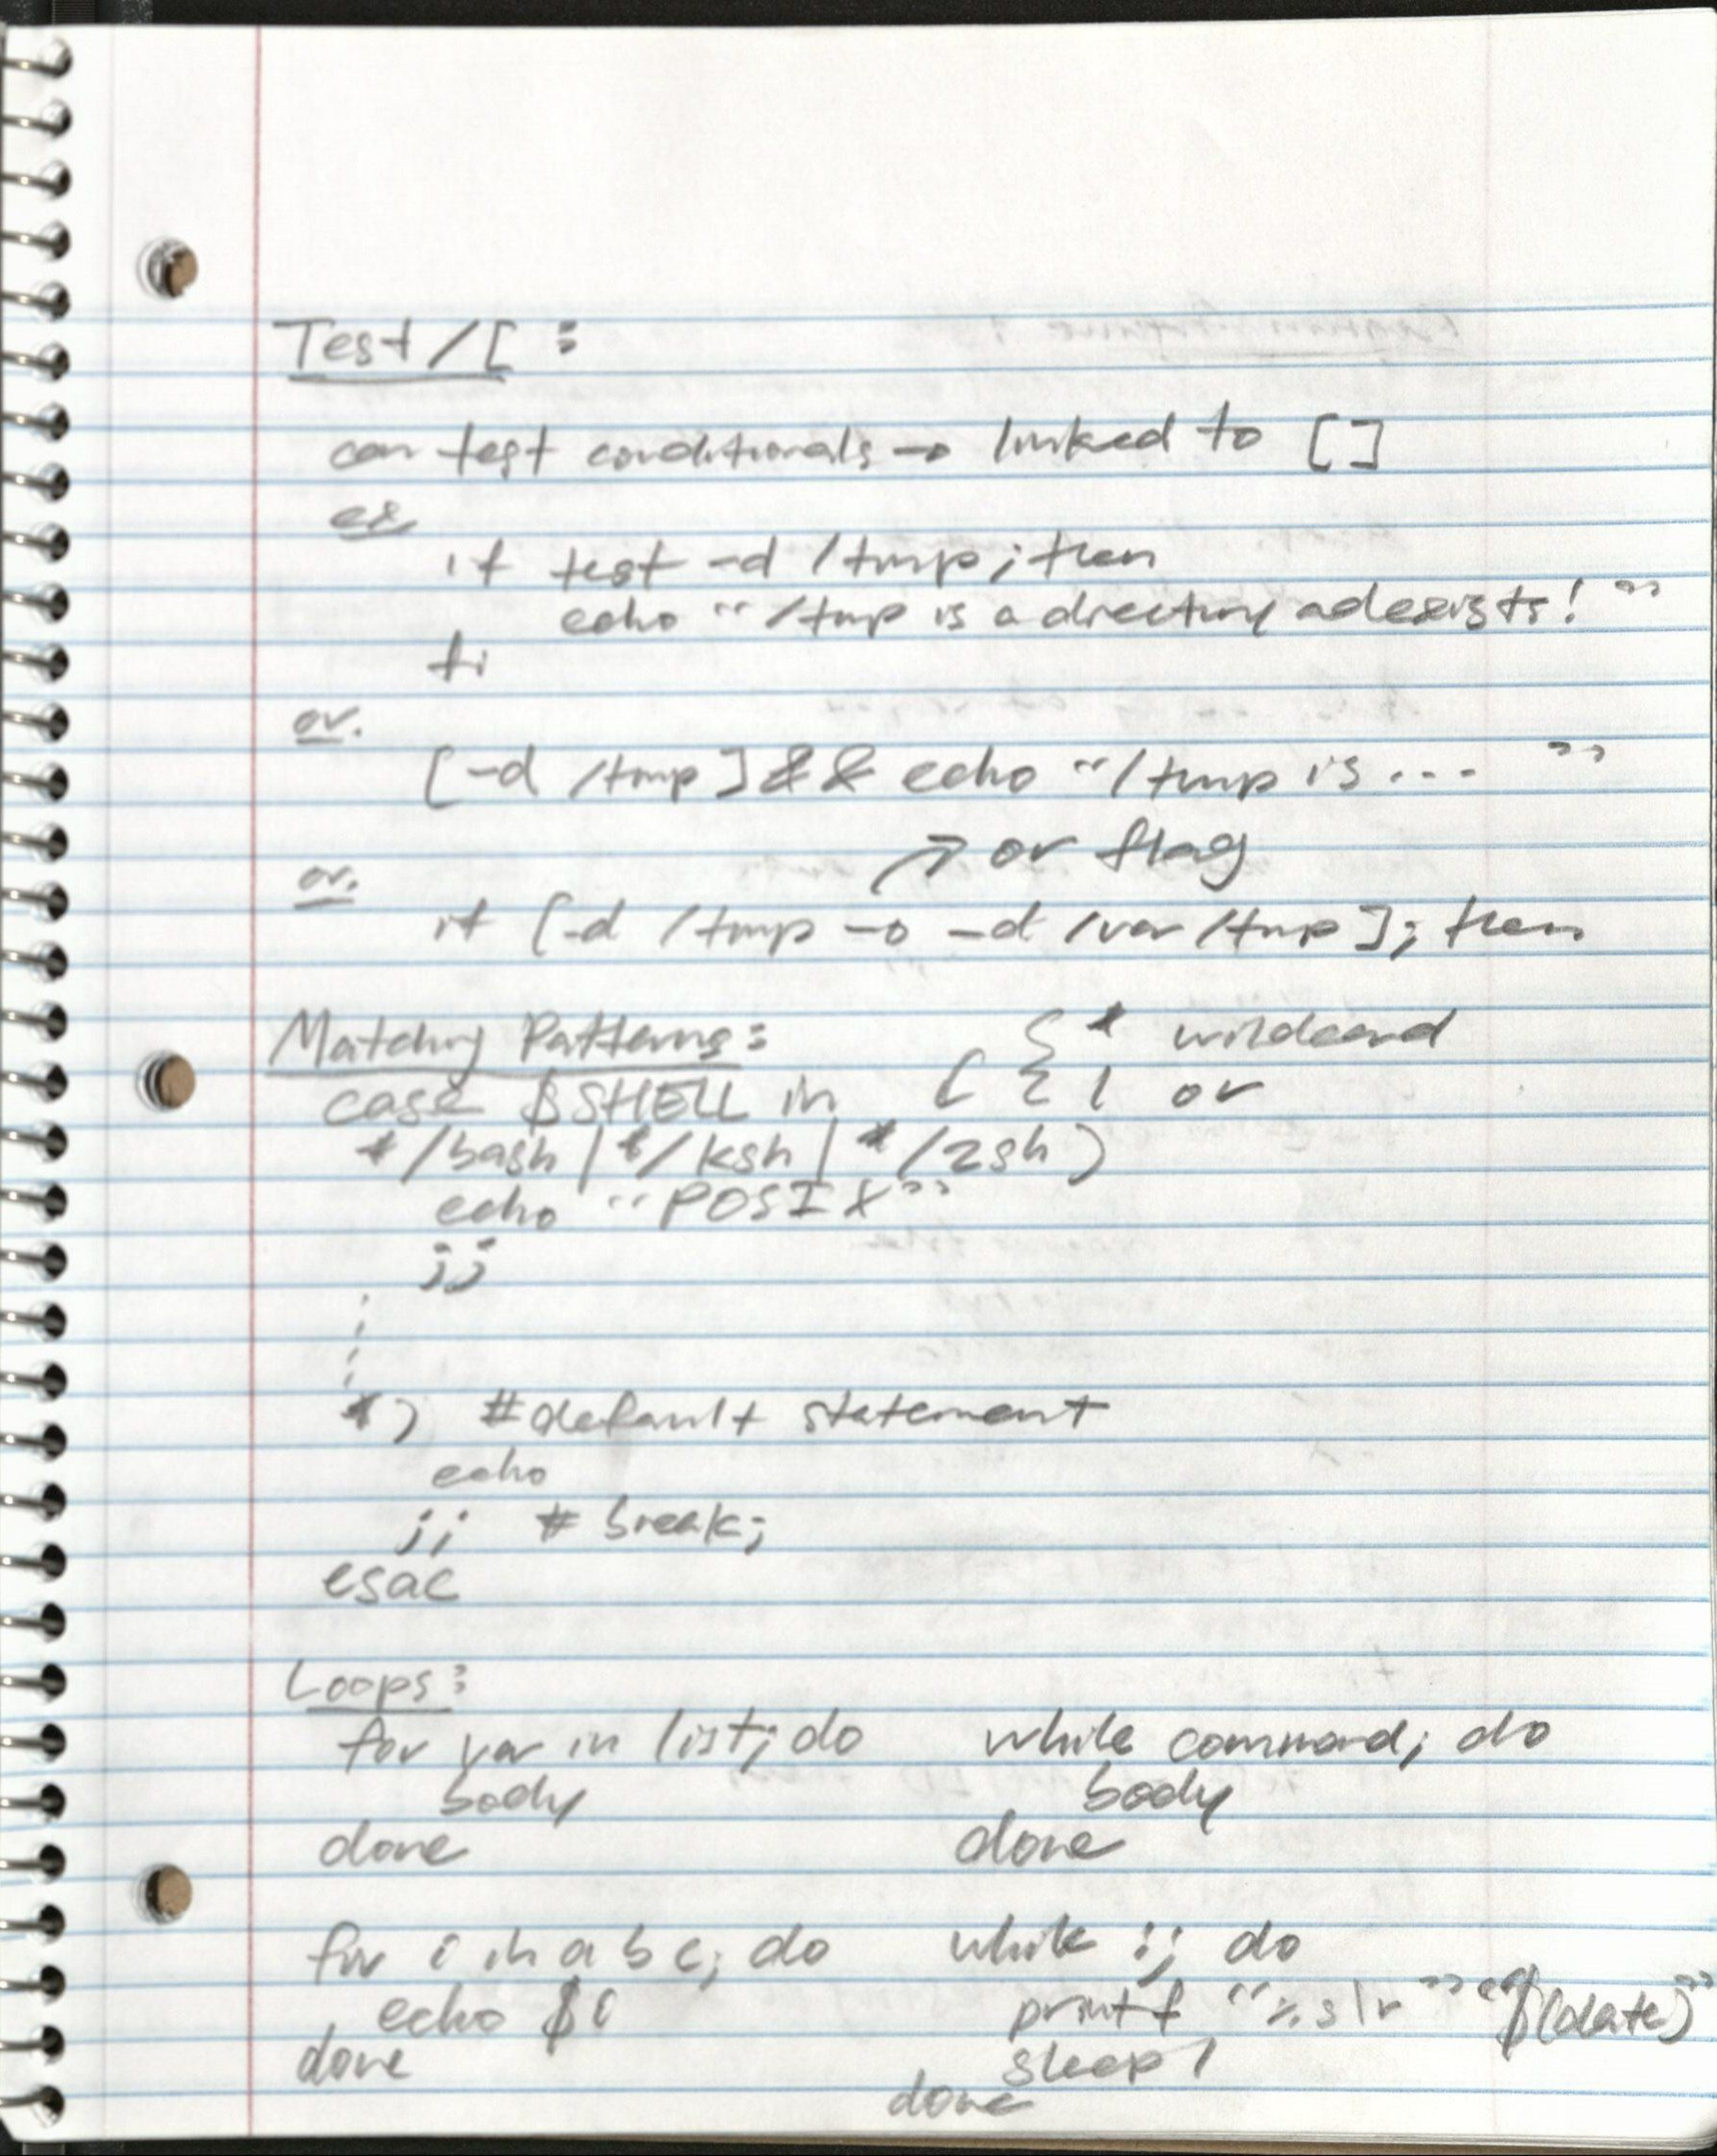 Test/[ :
can test conditionals → linked to []
ex
if test -d /tmp ; then
echo "/tmp is a directory ad exists! "
fi
or.
[-d /tmp] && echo "/tmp is ... "
→ or flag
or.
if [-d /tmp -o -d /var/tmp]; then
Matching Patterns:
{ * wildcard
case $SHELL in
[ { | or
*/bash | */ksh | */zsh )
echo "POSIX"
;;
*) #default statement
echo
;; # break;
esac
Loops:
for var in list; do
body
done
while command; do
body
done
for i in a b c; do
echo $i
done
while :; do
printf "%s\r" "$(date)"
sleep 1
done